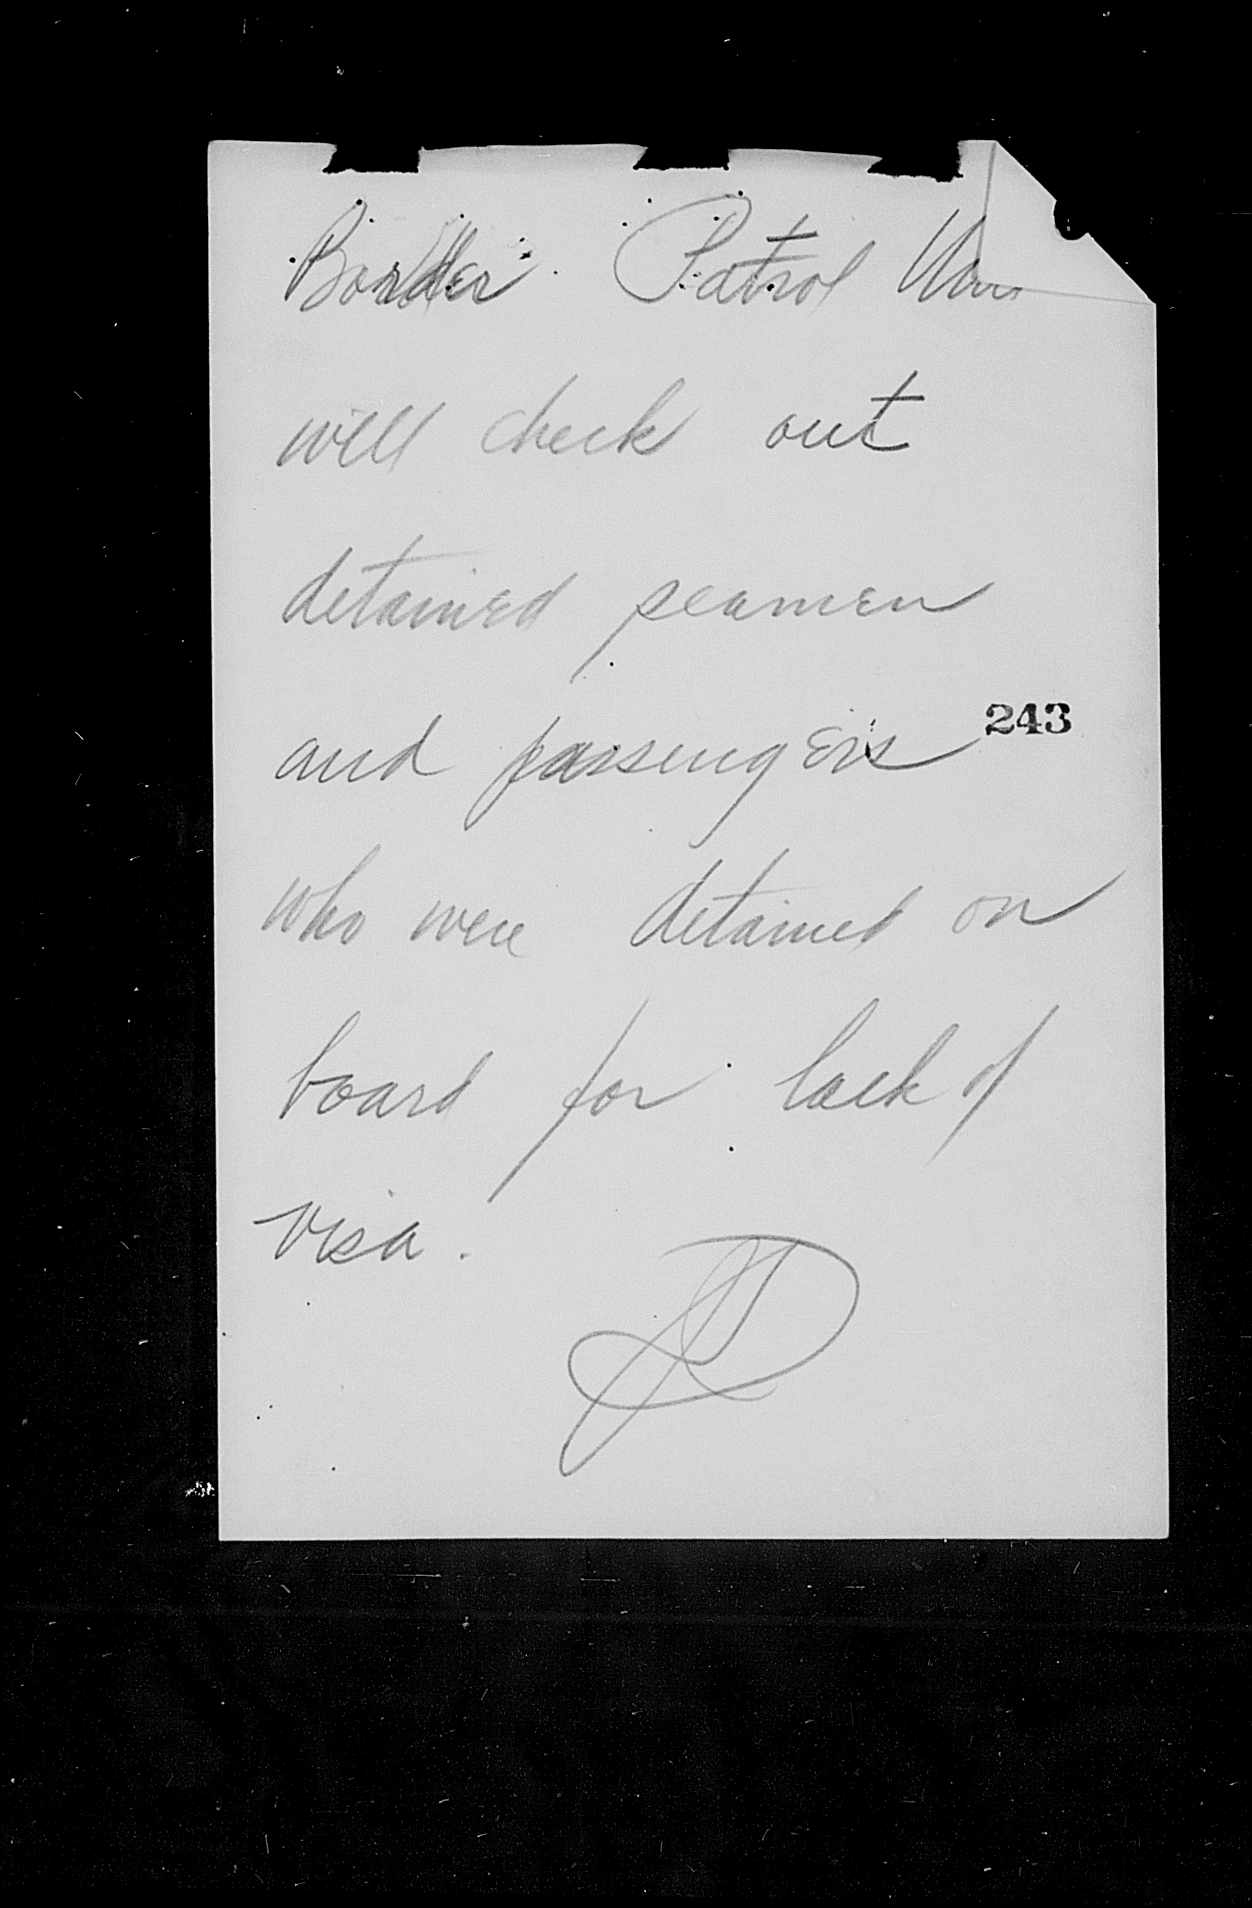 Border Patrol
will check out
detained seamen
and passengers 243
who were detained on
board for lack of
visa.